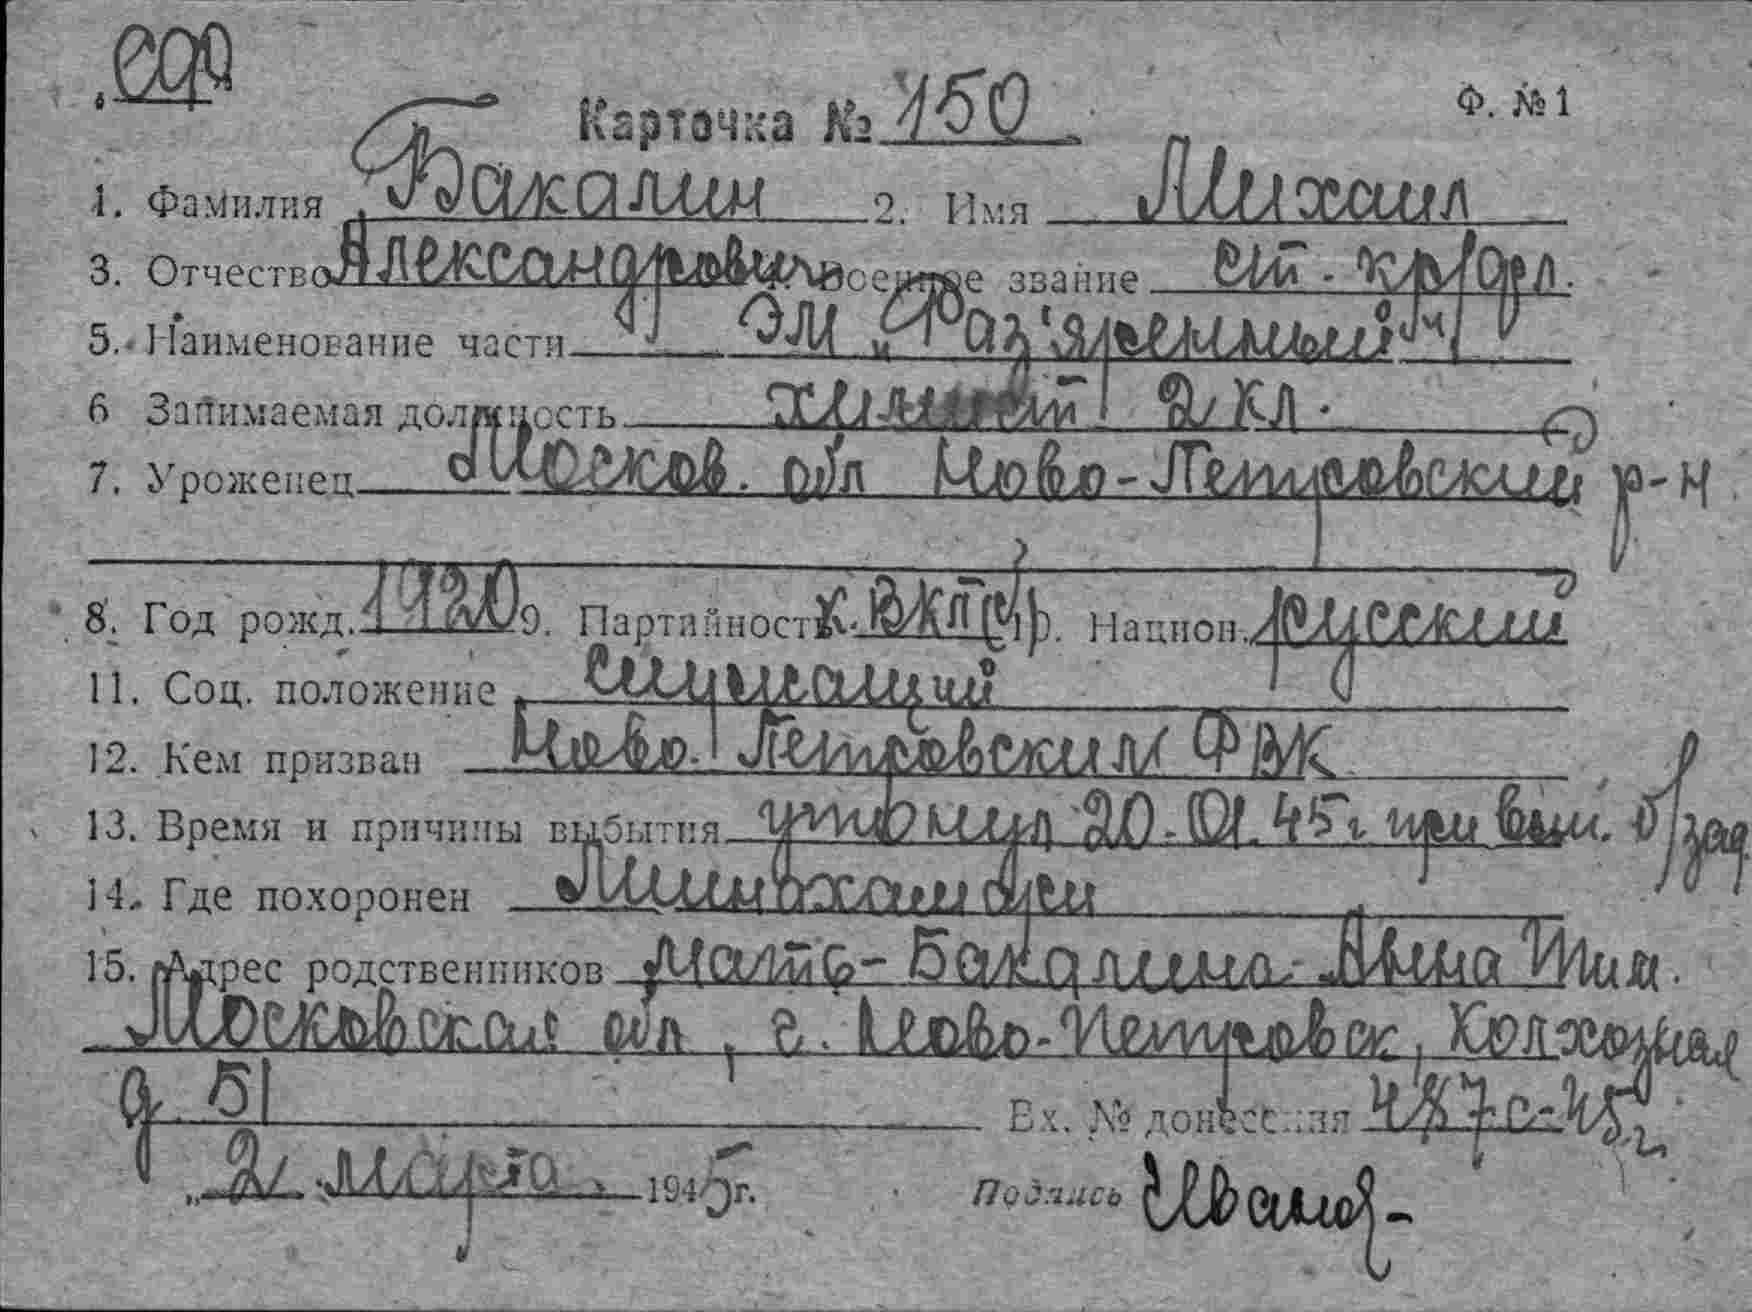 Карточка № 150 Ф. № 1
1. Фамилия Бакалин 2. Имя Михаил
3. Отчество Александрович Военное звание ст. кр/фл.
5. Наименование части ЭМ „Раз'яренный"
6 Занимаемая должность химист 2 кл.
7. Уроженец Москов. обл Ново-Петровский р-н
8. Год рожд. 1920 9. Партийность к. ВКП(б) 10. Национ. русский
11. Соц. положение служащий
12. Кем призван Ново Петровским РВК
13. Время и причины выбытия утонул 20.01.45г. при вып. б/зад
14. Где похоронен Лиинахамари
15. Адрес родственников мать - Бакалина Анна Тим.
Московская обл, г. Ново-Петровск, Колхозная
д 51
Вх. № донесения 487с-45г.
„2 марта 1945г. Подпись